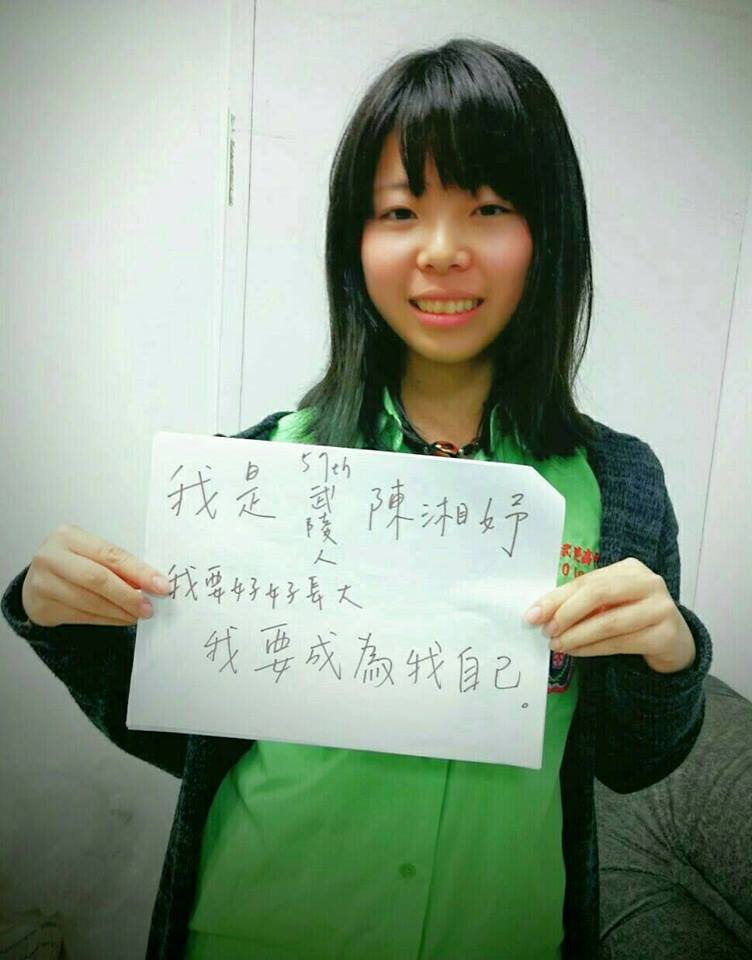 我是 57th 武陵人 陳湘妤
我要好好長大
我要成為我自己。
武陵高中